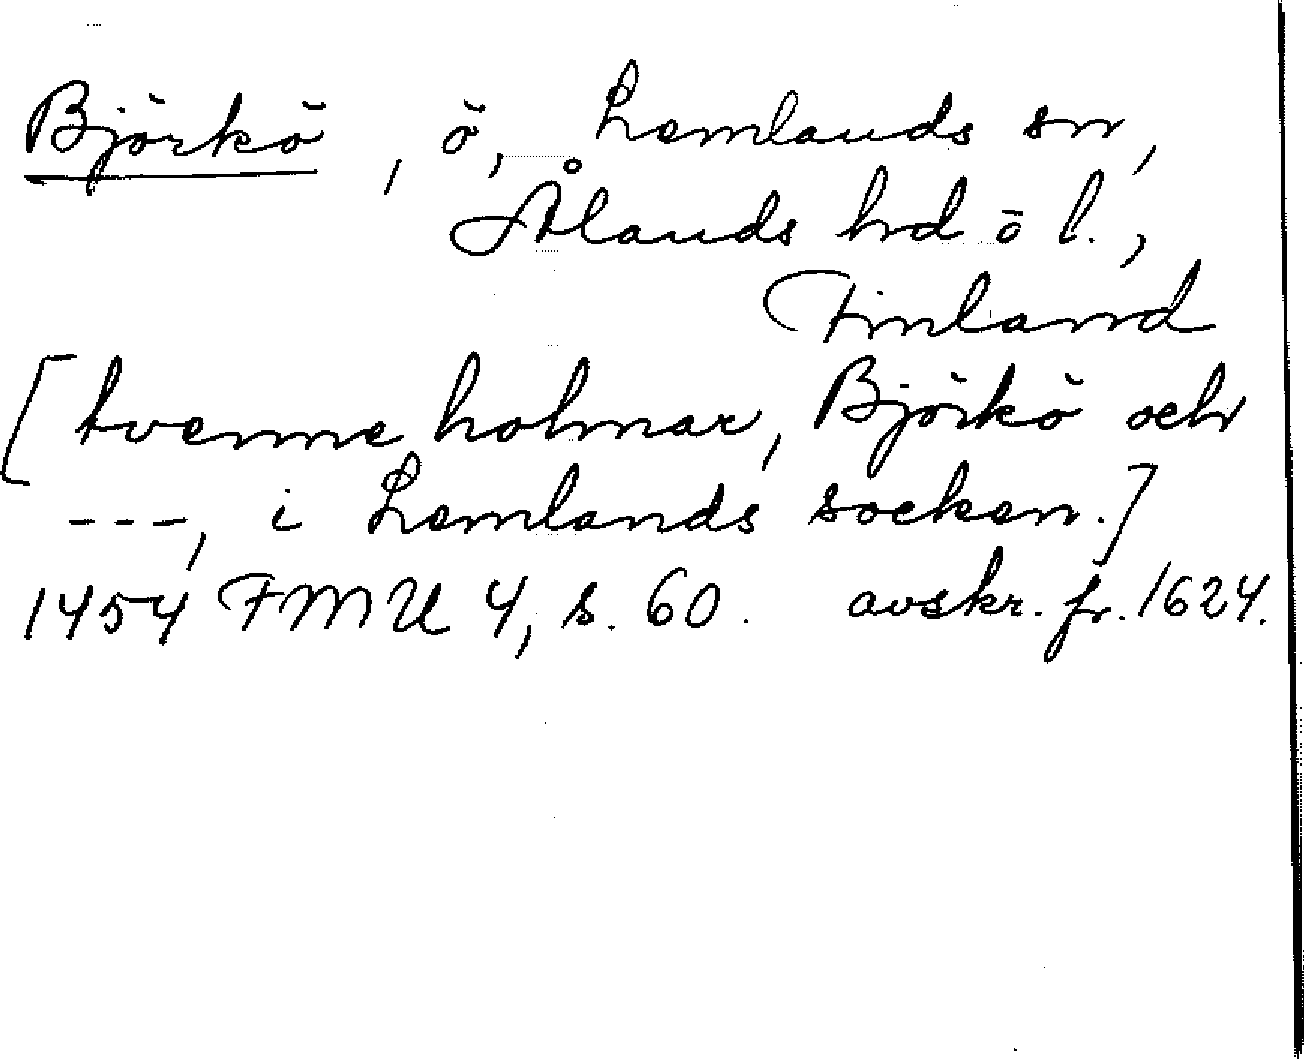 Björkö, ö, Lemlands sn,
Ålands hd ö l.,
Finland
[tvenne holmar, Björkö och
---, i Lemlands socken.]
1454 FMU 4, s. 60. avskr. fr. 1624.